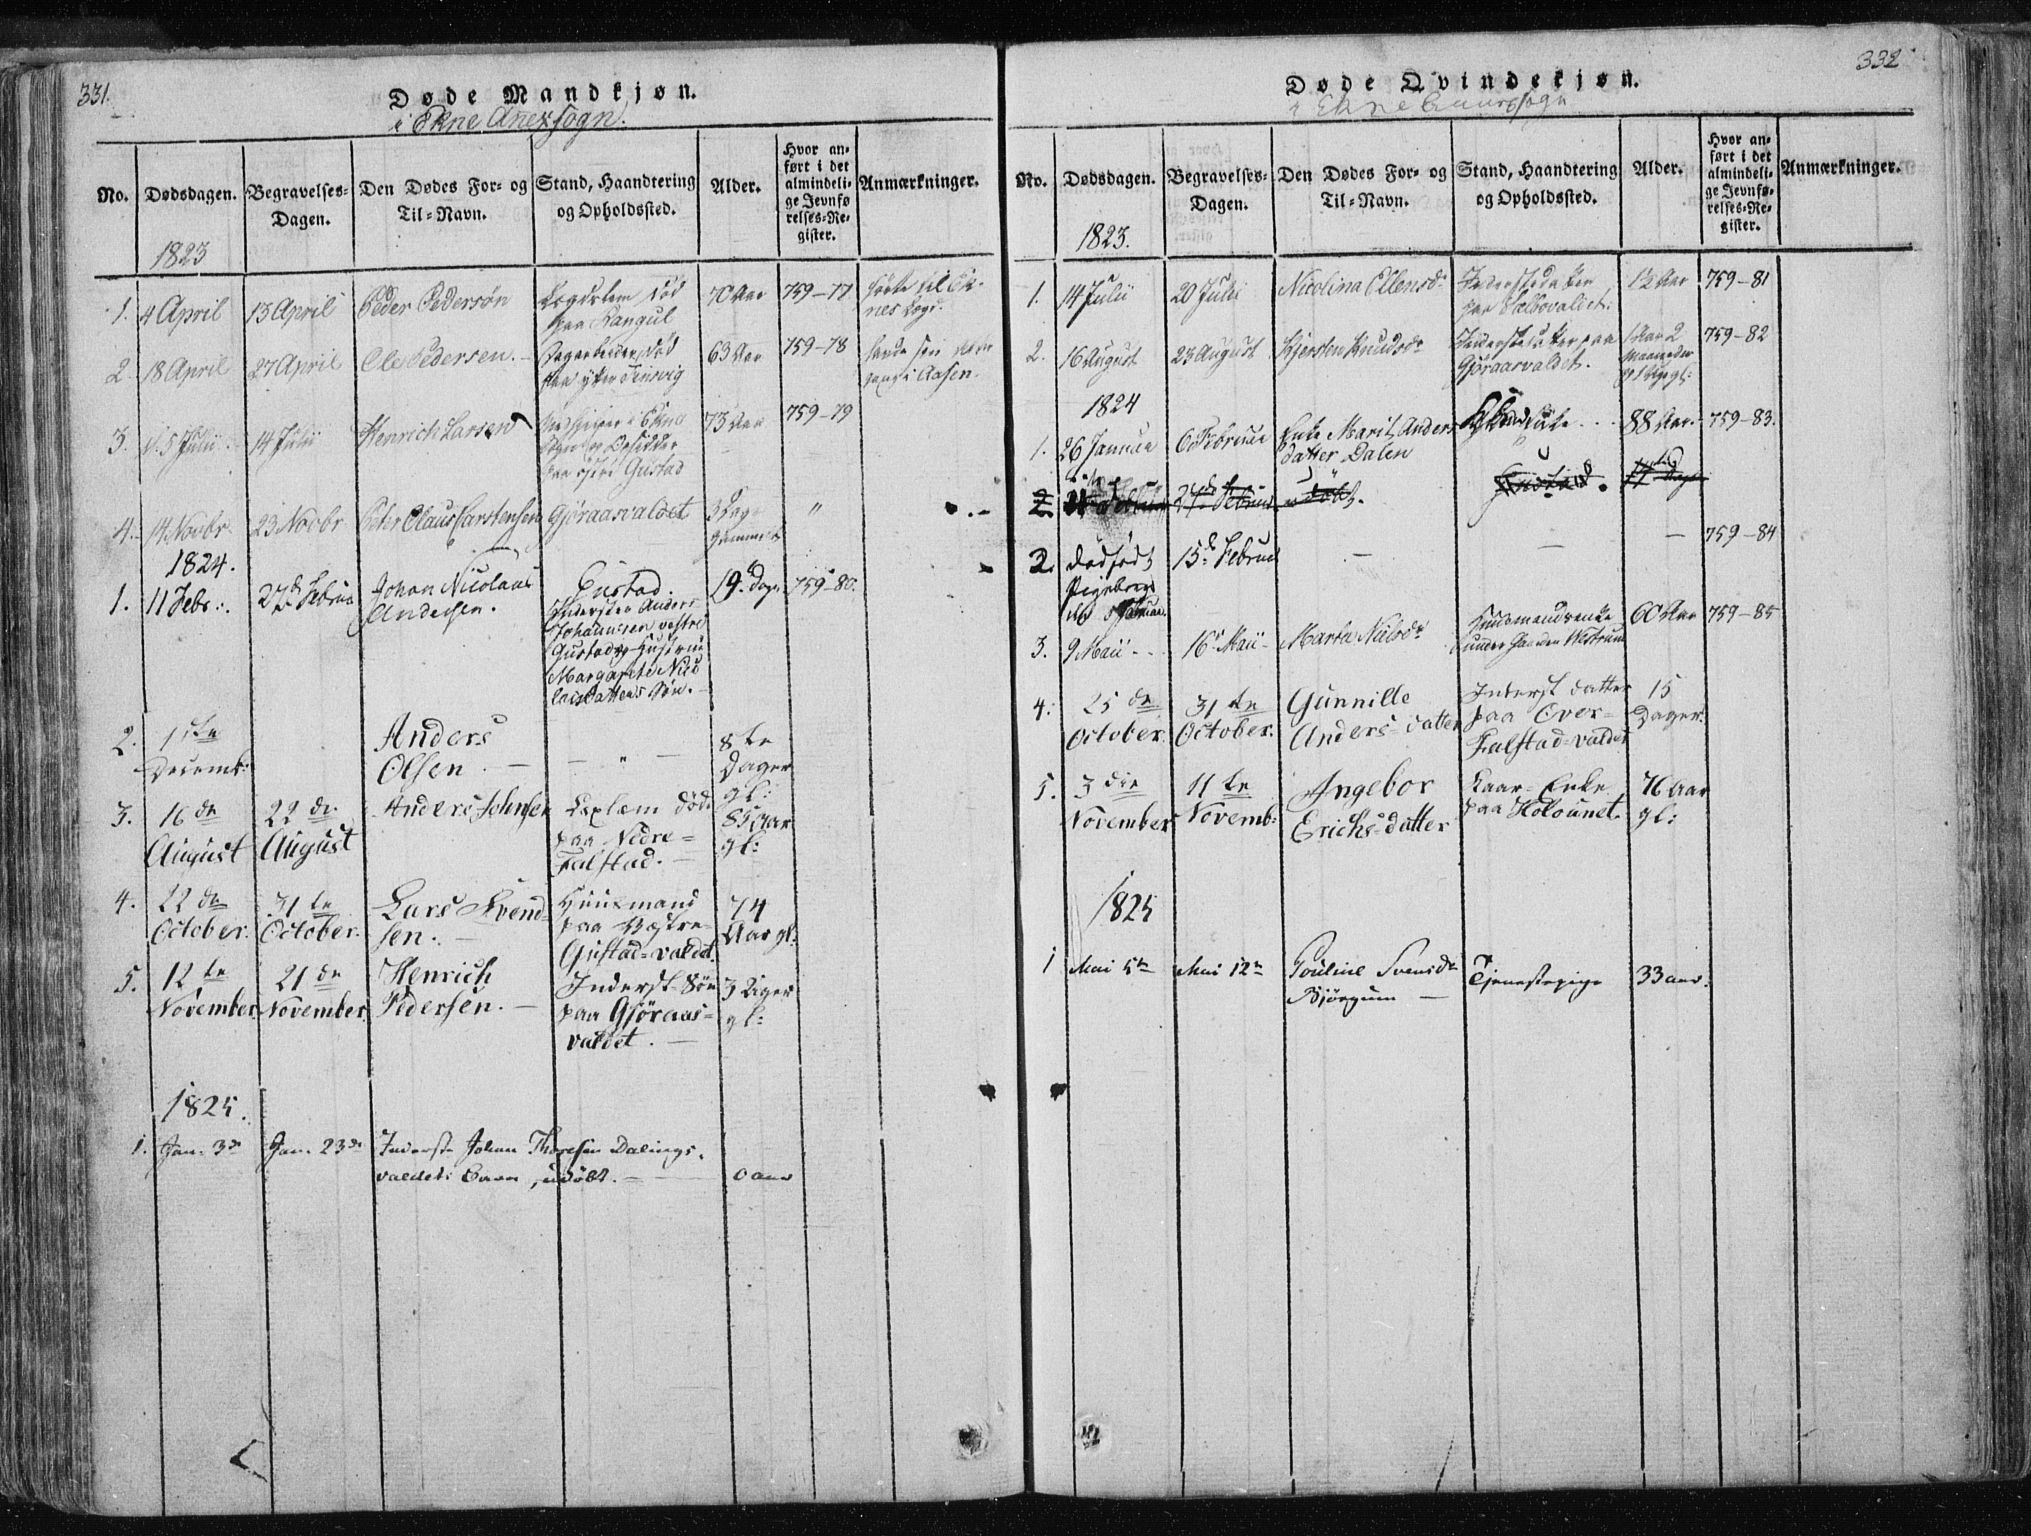 331.
Døde Mandkjøn.
i Ekne Anexsogn.
No.
Dødsdagen.
Begravelses-Dagen.
Den Dødes For- og Til-Navn.
Stand, Haandtering og Opholdssted.
Alder.
Hvor anført i det almindelige Jevnførelses-Register.
Anmærkninger.
1823
1. 4 April 13 April Peder Pedersøn død paa 70 Aar 759-77
2 18 April 27 April Ole Pedersen. død 63 Aar 759-78 i Aasen.
3. 5 Julii 14 Julii Henrich Larsen Gustad 73 Aar 759-79
4. 14 Novbr. 23 Novbr Peter Claus Carstensen Gjöraasvaldet 3 Dage "
1824.
1. 11 Febr. 27de Februa Johan Nicolaus Andersen. Gustad. 19 Dage 759-80.
Indersten Anders
Johannsen vestre
Gustad og Hustrue
Margarete Nico
laisdatters Søn.
2. 1ste Decemb: Anders Olsen. — — " — 8te Dager gl:
3. 16de August 22de August Anders Johnsen Leglæm død paa Nedre=Falstad. — 85 Aar gl:
4. 22de October. 31te October. Lars Svend=sen. — Huusmand paa Vestre=Gustad=valdet. 74 Aar gl:
5. 12te November. 21de November. Henrich Pedersen. — Inderst=Søn paa Gjöraas=valdet. — 3 Uger gl:
1825.
1. Jan. 3de Jan. 23de Inderst Johan Thoresen Dalings.
valdets Barn, udöbt. — 0 aar
332
Døde Qvindekjøn.
i Ekne Annexsogn
No.
Dødsdagen.
Begravelses-Dagen.
Den Dødes For- og Til-Navn.
Stand, Haandtering og Opholdssted.
Alder.
Hvor anført i det almindelige Jevnførelses-Register.
Anmærkninger.
1823.
1. 14 Julii 20 Julii Nicolina Ellensdr 12 Aar 759-81
2. 16 August 23 August Kjersten Knudsdr Inderstdatter paa Gjöraasvaldet. 1 Aar 2 Maaneder 759-82
1824
1. 26 Januar 6 Februar Enke Marit Anders datter Dalen 88 Aar. 759-83.
2. 27de Februar udöbt. Gustad. Dage
2. Dødfødt Pigebarn 15de Februar — — — 759-84
3. 9 Maii 16 Maii Marta Nielsdr Huusmandsenke under Gaarden 60 Aar 759-85
4. 25de October. 31te October. Gunnille Anders=datter Inderst datter paa Over=Falstad=valdet 15 Dager.
5. 3die November 11te Novemb: Ingebor Erichs=datter Kaar=Enke paa Holoúnet. 76 Aar gl:
1825
1 Mai 5te Mai 12te Pouline Svensdr Bjørgum — Tjenestepige 33 aar.